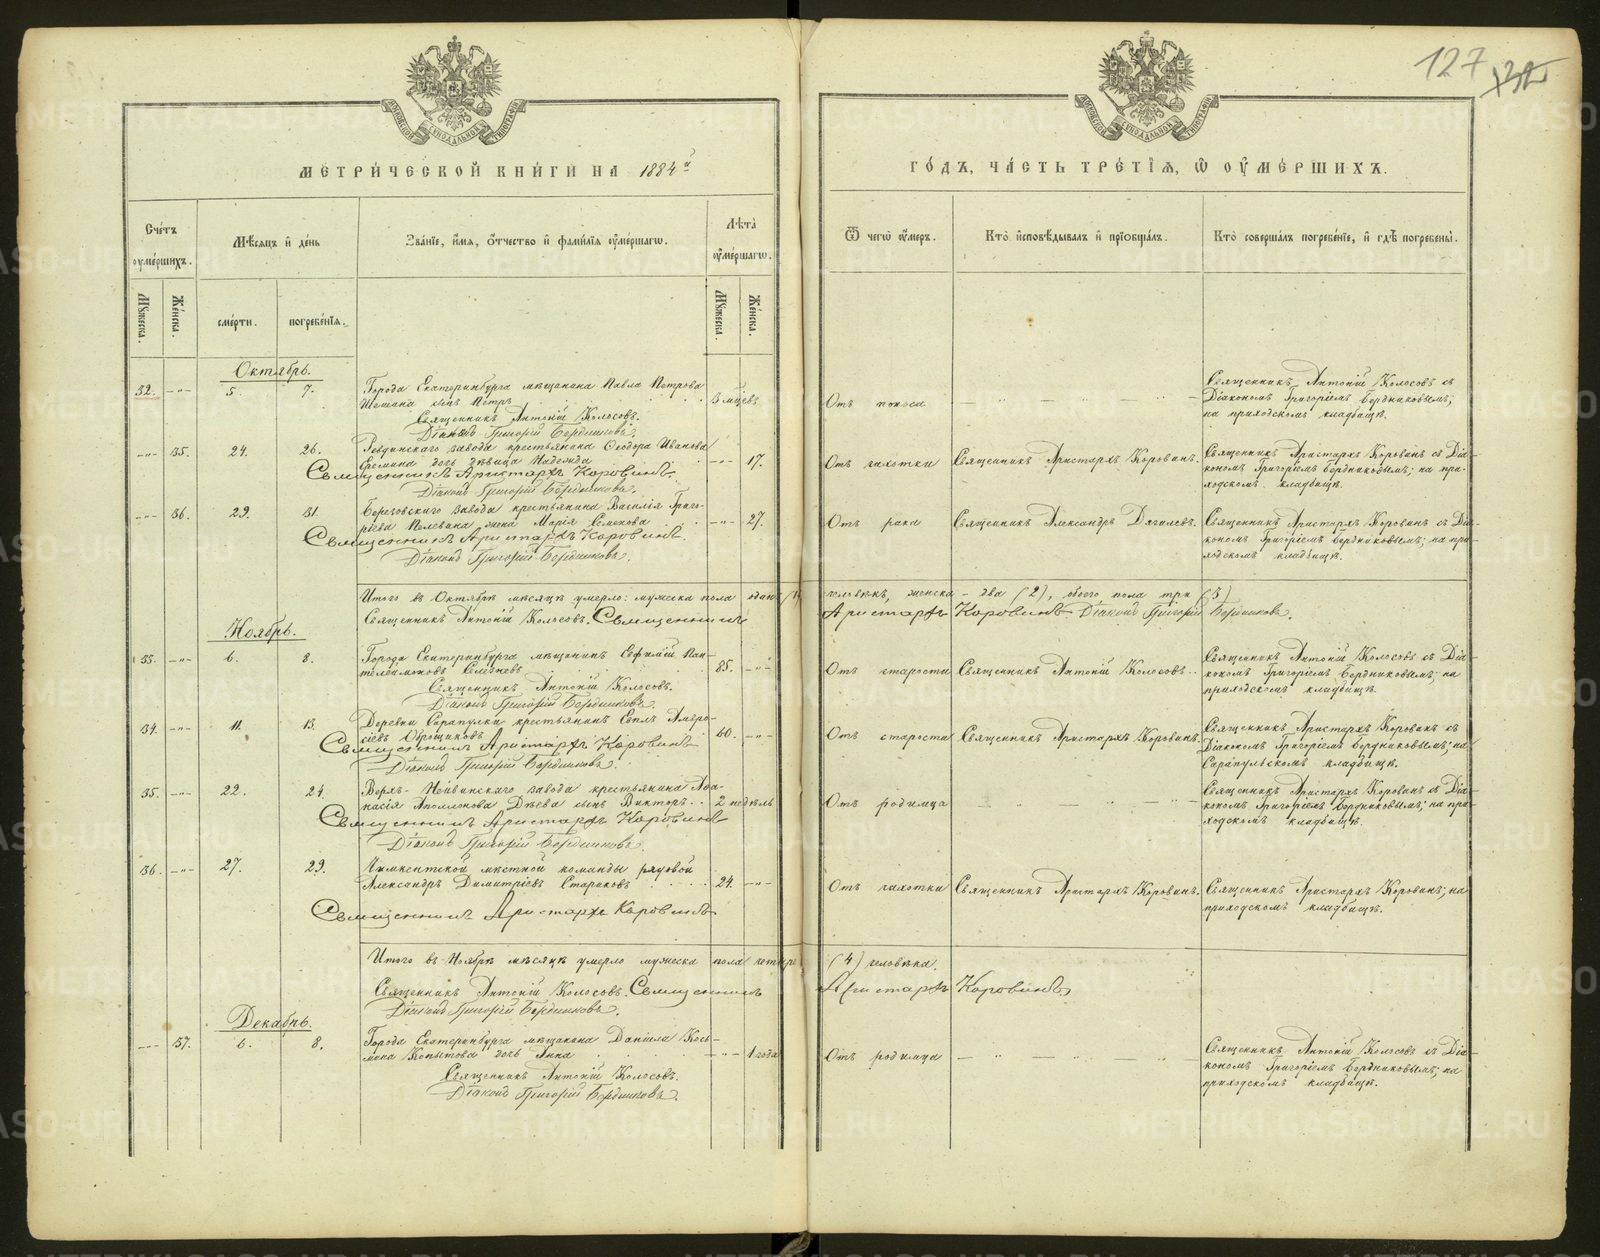 127
МЕТРИЧЕСКОЙ КНИГИ НА 1884й
ГОДЪ, ЧАСТЬ ТРЕТІЯ, Ѡ ОУМЕРШИХЪ.
Счетъ оумершихъ.
Мѣсяцъ и день
Званіе, имя, отчество и фамилія оумершагѡ.
Лѣта оумершагѡ.
Ѿ чегѡ оумеръ.
Кто исповѣдывалъ и пріобщалъ.
Кто совершалъ погребеніе, и гдѣ погребены.
Мужеска. Женска. смерти. погребенія. Мужеска. Женска.
Октябрь.
32. —"— 5. 7. Города Екатеринбурга мѣщанина Павла Петрова
сынъ Петръ 3 мцевъ
Священникъ Антоній Колосовъ.
Діаконъ Григорій Бердниковъ.
Отъ поноса
Священникъ Антоній Колосовъ съ
Діакономъ Григоріемъ Бердниковымъ;
на приходскомъ кладбищѣ.
—"— 35. 24. 26. Ревдинскаго завода крестьянина Ѳеодора Иванова
Еремина дочь дѣвица Надежда —"— 17.
Священникъ Аристархъ Коровинъ.
Діаконъ Григорій Бердниковъ.
Отъ чахотки Священникъ Аристархъ Коровинъ.
Священникъ Аристархъ Коровинъ съ Діа-
кономъ Григоріемъ Бердниковымъ; на при-
ходскомъ кладбищѣ.
—"— 36. 29. 31. Березовскаго завода крестьянина Василія Григо-
рьева Пелевина жена Марія Семенова —"— 27.
Священникъ Аристархъ Коровинъ.
Діаконъ Григорій Бердниковъ.
Отъ рака Священникъ Александръ Дягилевъ.
Священникъ Аристархъ Коровинъ съ Діа-
кономъ Григоріемъ Бердниковымъ; на при-
ходскомъ кладбищѣ.
Итого въ Октябрѣ мѣсяцѣ умерло: мужеска пола одинъ (1) человѣкъ, женска – два (2), обоего пола три (3)
Священникъ Антоній Колосовъ. Священникъ Аристархъ Коровинъ Діаконъ Григорій Бердниковъ.
Ноябрь.
33. —"— 6. 8. Города Екатеринбурга мѣщанинъ Евфимій Пан-
телеимоновъ Селезневъ 85. —"—
Священникъ Антоній Колосовъ.
Діаконъ Григорій Бердниковъ.
Отъ старости Священникъ Антоній Колосовъ.
Священникъ Антоній Колосовъ съ Діа-
кономъ Григоріемъ Бердниковымъ; на
приходскомъ кладбищѣ.
34. —"— 11. 13. Деревни Сарапулки крестьянинъ Амвро-
сіевъ 60. —"—
Священникъ Аристархъ Коровинъ
Діаконъ Григорій Бердниковъ.
Отъ старости Священникъ Аристархъ Коровинъ.
Священникъ Аристархъ Коровинъ съ
Діакономъ Григоріемъ Бердниковымъ; на
Сарапульскомъ кладбищѣ.
35. —"— 22. 24 Верхъ-Нейвинскаго завода крестьянина Аѳа-
насія Аполлонова Дѣева сынъ Викторъ 2 недѣль
Священникъ Аристархъ Коровинъ
Діаконъ Григорій Бердниковъ.
Отъ родимца
Священникъ Аристархъ Коровинъ съ Діа-
кономъ Григоріемъ Бердниковымъ; на при-
ходскомъ кладбищѣ.
36. —"— 27. 29. Чимкентской мѣстной команды рядовой
Александръ Димитріевъ Стариковъ 24. —"—
Священникъ Аристархъ Коровинъ
Отъ чахотки Священникъ Аристархъ Коровинъ.
Священникъ Аристархъ Коровинъ; на
приходскомъ кладбищѣ.
Итого въ Ноябрѣ мѣсяцѣ умерло мужеска пола четыре (4) человѣка.
Священникъ Антоній Колосовъ. Священникъ Аристархъ Коровинъ
Діаконъ Григорій Бердниковъ.
Декабрь.
—"— 37. 6. 8. Города Екатеринбурга мѣщанина Даніила Козь-
мина Копытова дочь Анна —"— 1 года
Священникъ Антоній Колосовъ.
Діаконъ Григорій Бердниковъ.
Отъ родимца
Священникъ Антоній Колосовъ съ Діа-
кономъ Григоріемъ Бердниковымъ; на
приходскомъ кладбищѣ.
METRIKI.GASO-URAL.RU